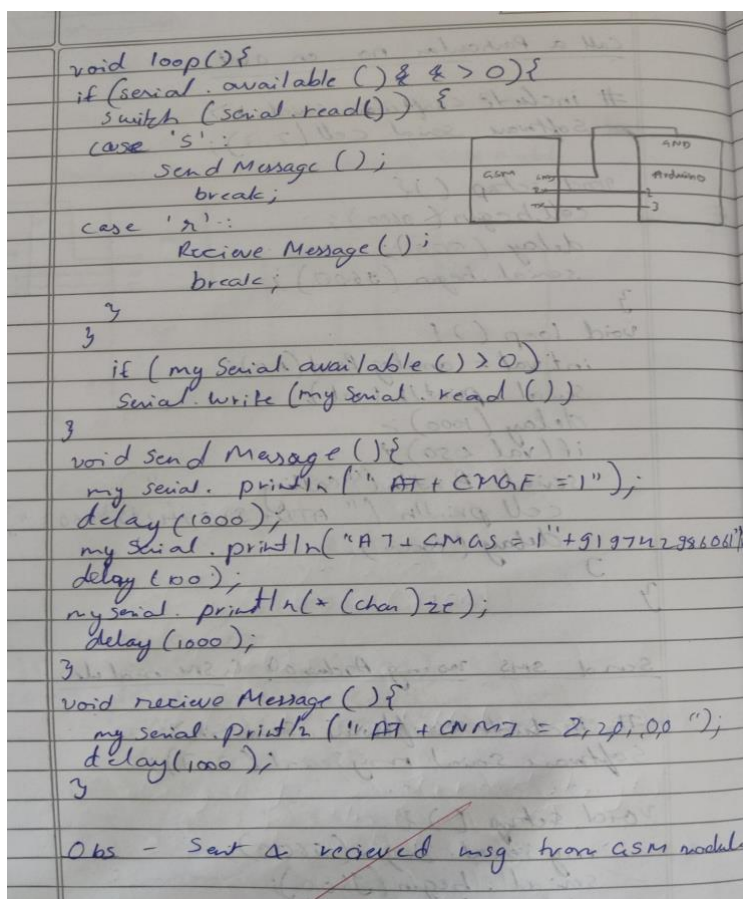 void loop(){
if (serial.available () & & > 0){
switch (serial.read()) {
case 's':
send Message ();
break;
case 'r':
Recieve Message();
break;
}
}
GSM
GND
Rx
Tx
GND
Arduino
2
3
if (my Serial.available () > 0)
Serial.write (my Serial.read ())
}
void send Message (){
my serial. println (" AT + CMGF = 1");
delay (1000);
my Serial.println("AT + CMGS = 1"+919742986061"
delay (100);
my serial. println(* (char)26);
delay (1000);
}
void recieve Message (){
my serial.println (" AT + CNMI = 2,2,0,0,0 ");
delay(1000);
}
Obs - Sent & recieved msg from GSM modul